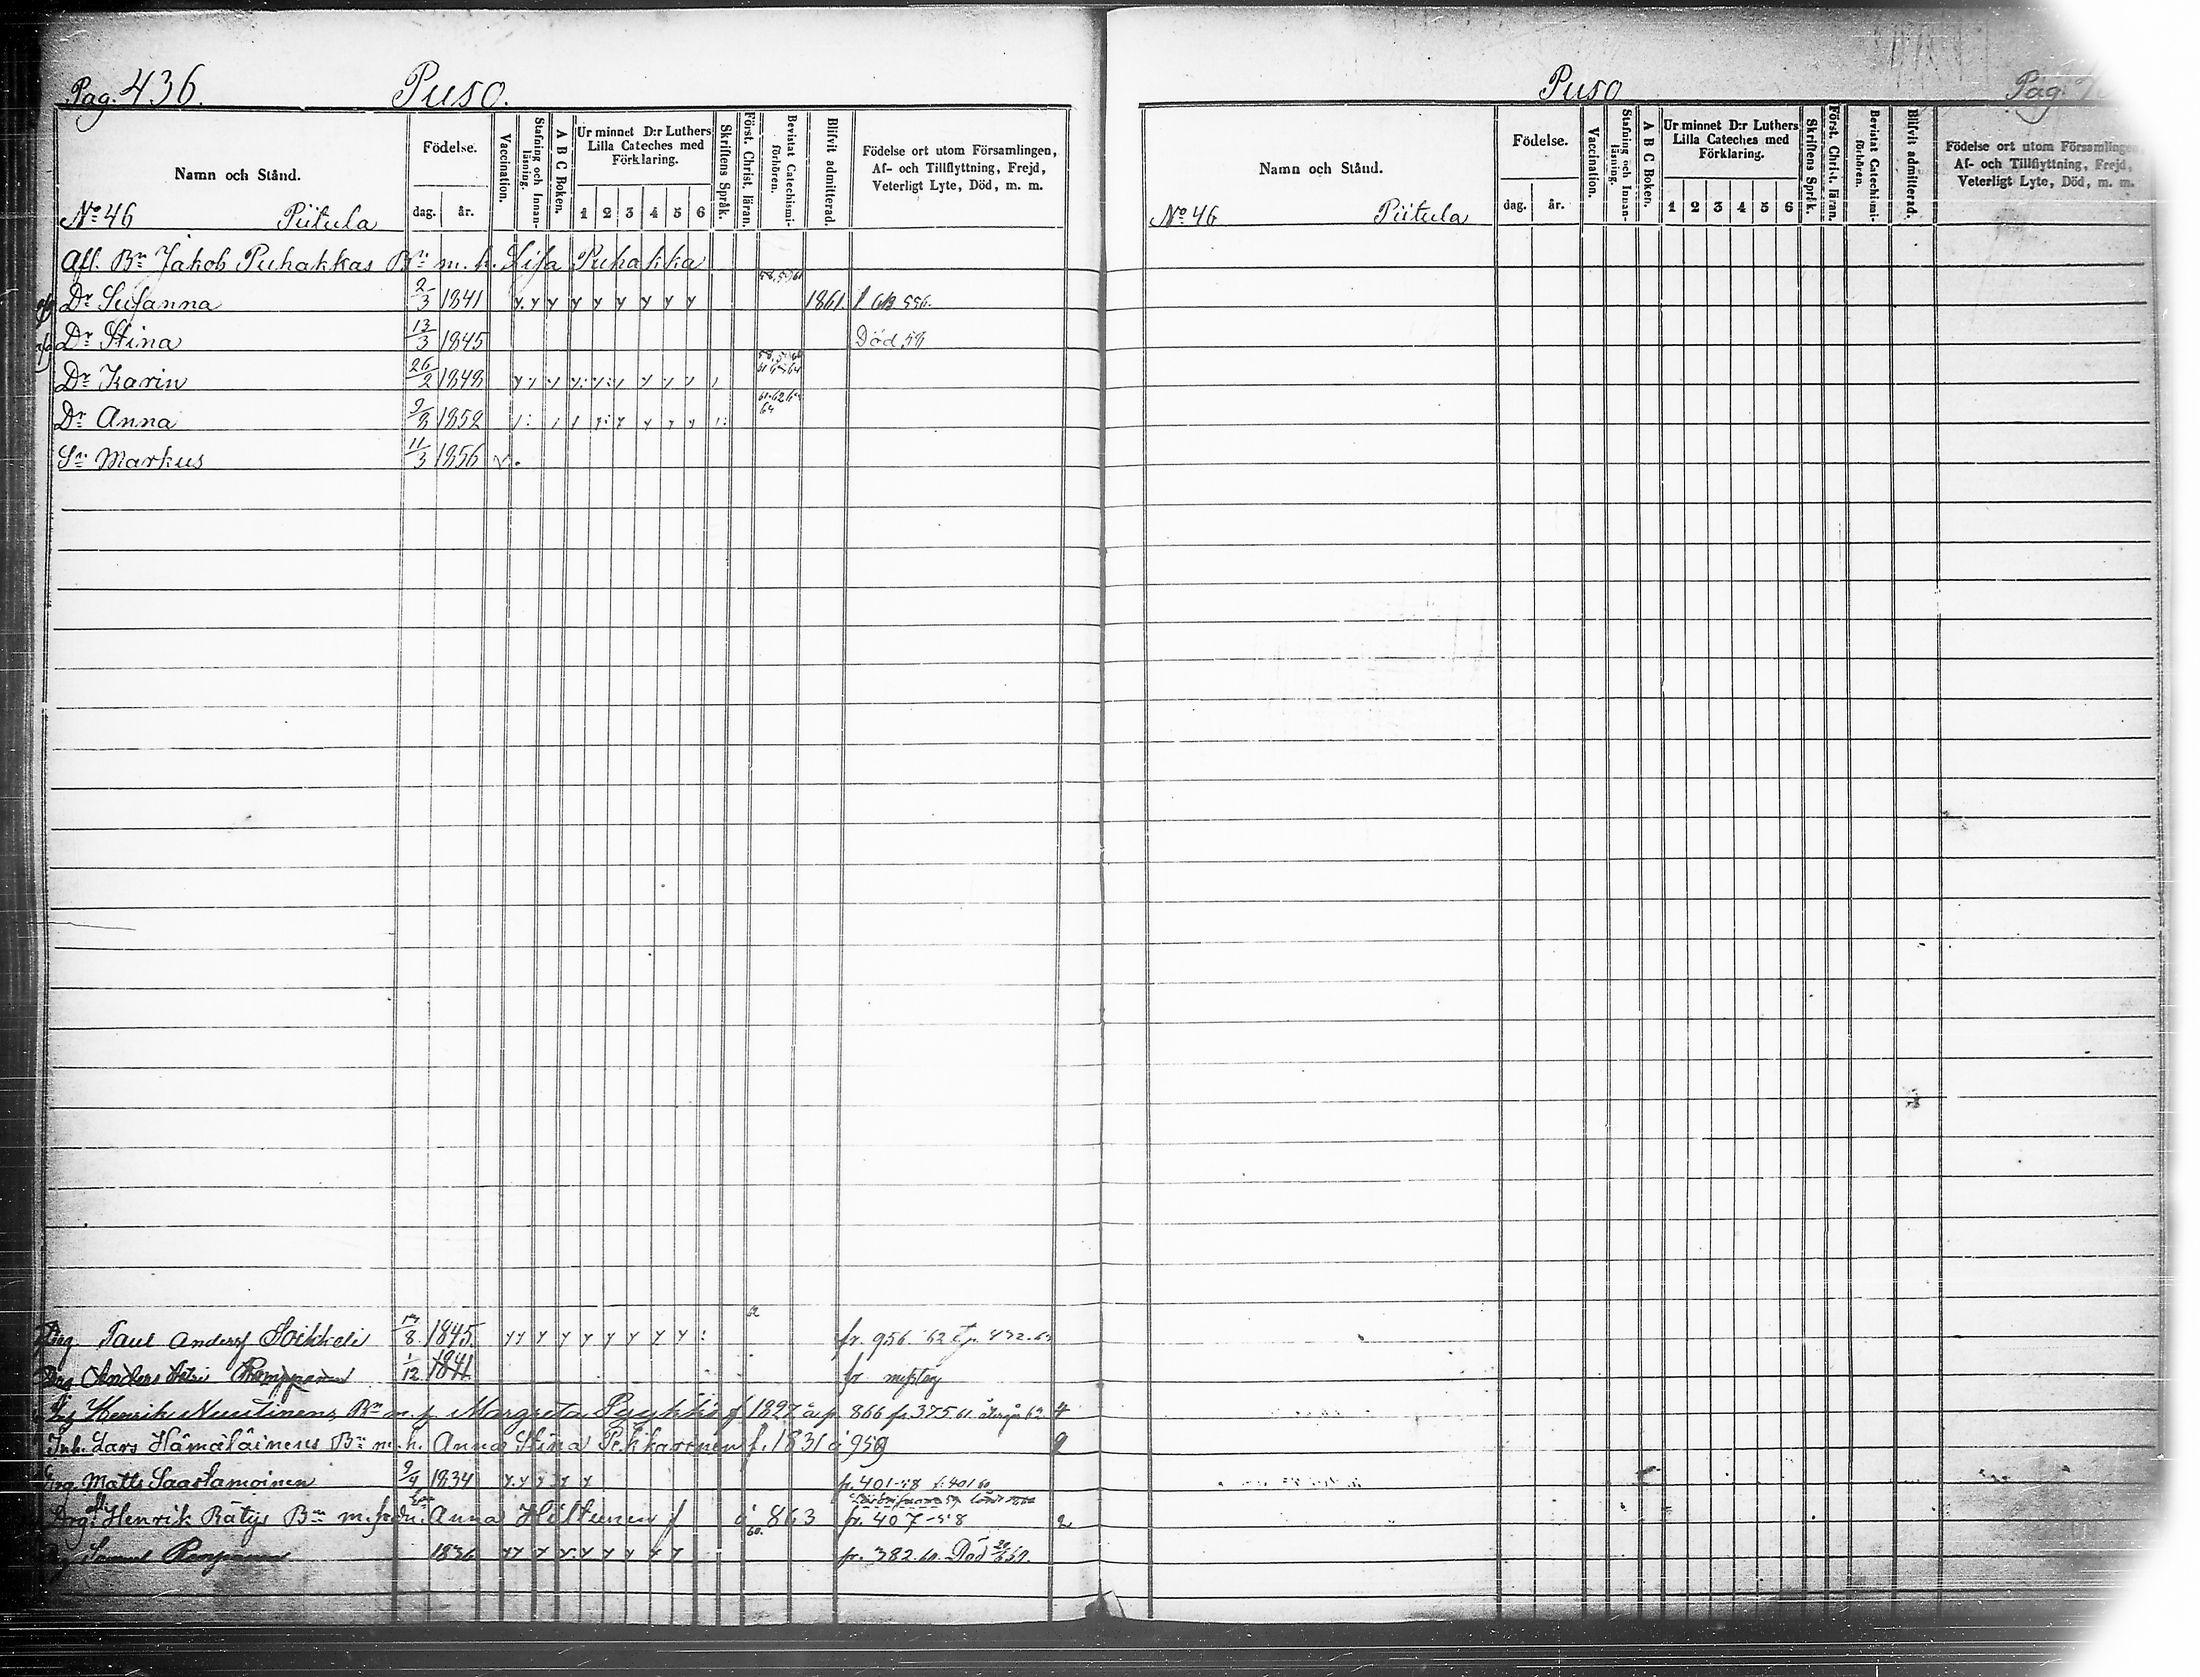 Pag. 436. Puso.
Namn och Stånd. Födelse. dag. år. Vaccination. Stafning och Innanläsning. A B C Boken. Ur minnet D:r Luthers Lilla Cateches med Förklaring. 1 2 3 4 5 6 Skriftens Språk. Först. Christ. läran. Bevistat Catechismiförhören. Blifvit admitterad. Födelse ort utom Församlingen, Af- och Tillflyttning, Frejd, Veterligt Lyte, Död, m. m.
No 46 Piitula
Afl. Bn Jakob Puhakkas Bn m. h. Lisa Puhakka
Dr Susanna 2/3 1841 1861.
Dr Stina 13/3 1845 Död 58
Dr Karin 26/2 1848
Dr Anna 9/8 1852
Sn Markus 11/3 1856
Drg Paul Andersf Soikkeli 8 1845 fr. 956 62
Drg Anders 1/12 1841 fr
Henrik Nuutinens Bn m. h. Margreta f 1827 866 fr. 375 61 4
Inh. Lars Hämäläinens Bn m. h. Anna Stina Pekkarinen f. 1831 å 959
Drg. Matts Saastamoinen 9/4 1834 fr. 401-58 t. 401 60
Drg. Henrik Rätys Bn m. Anna Hiltunen f å 863 fr. 407-58 2
Samuel 1836 fr. 382. 60. Död
Puso Pag.
Namn och Stånd. Födelse. dag. år. Vaccination. Stafning och Innanläsning. A B C Boken. Ur minnet D:r Luthers Lilla Cateches med Förklaring. 1 2 3 4 5 6 Skriftens Språk. Först. Christ. läran. Bevistat Catechismiförhören. Blifvit admitterad. Födelse ort utom Församlingen, Af- och Tillflyttning, Frejd, Veterligt Lyte, Död, m. m.
No 46 Piitula